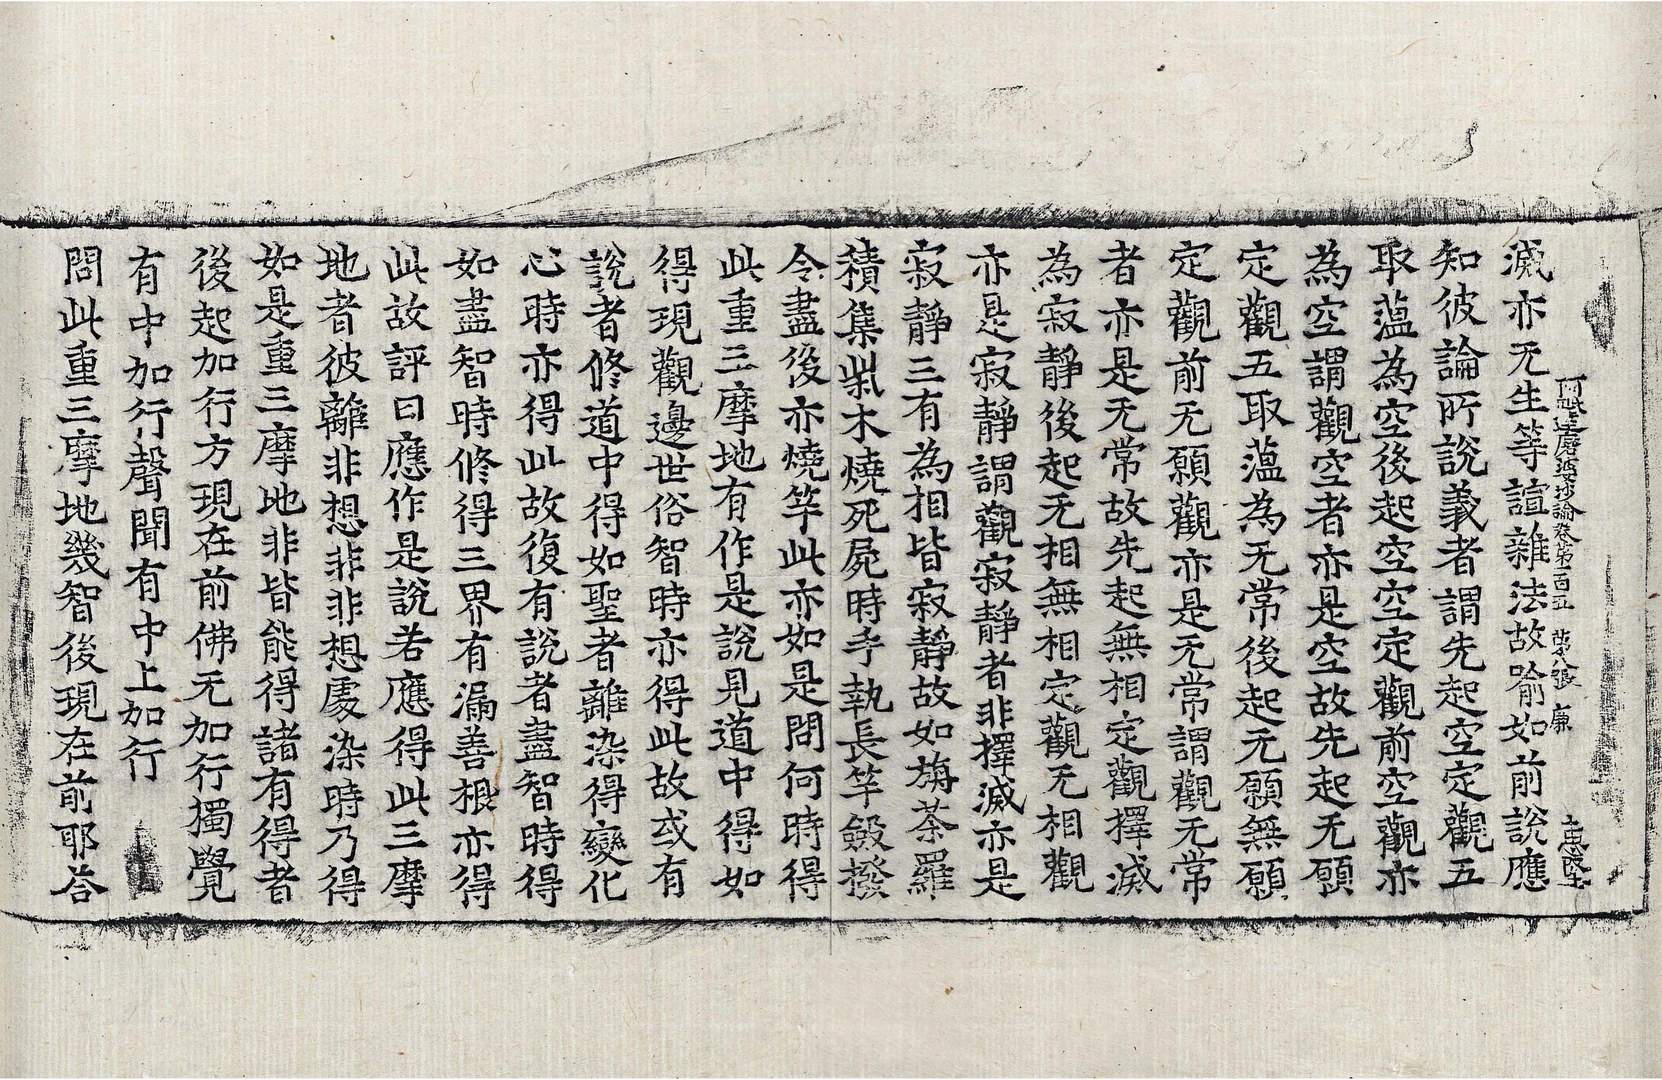 阿毗達磨婆沙論卷第一百五 第八張 廉
滅亦无生等諠雜法故喻如前說應
知彼論所說義者謂先起空定觀五
取蕰為空後起空空定觀前空觀亦
為空謂觀空者亦是空故先起无願
定觀五取蕰為无常後起无願無願
定觀前无願觀亦是无常謂觀无常
者亦是无常故先起無相定觀擇滅
為寂靜後起无相無相定觀无相觀
亦是寂靜謂觀寂靜者非擇滅亦是
寂靜三有為相皆寂靜故如旃荼羅
積集柴木燒死屍時手執長竿斂撥
令盡後亦燒竿此亦如是問何時得
此重三摩地有作是說見道中得如
得現觀邊世俗智時亦得此故或有
說者修道中得如聖者離染得變化
心時亦得此故復有說者盡智時得
如盡智時修得三界有漏善根亦得
此故評曰應作是說若應得此三摩
地者彼離非想非非想處染時乃得
如是重三摩地非皆能得諸有得者
後起加行方現在前佛无加行獨覺
有中加行聲聞有中上加行
問此重三摩地幾智後現在前耶荅